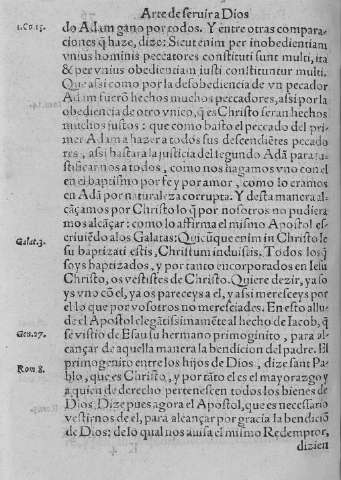 Arte de seruir a Dios
1.Co.15.
do Adam gano por todos. Y entre otras compara-
ciones q̃ haze, dize: Sicut enim per inobedientiam
vnius hominis peccatores constituti sunt multi, ita
& per vnius obedientiam iusti constituntur multi.
Que assi como por la desobediencia de vn pecador
Adam fuerõ hechos muchos peccadores, assi por la
obediencia de otro vnico, q̃ es Christo seran hechos
muchos justos: que como basto el peccado del pri-
mer Adam a hazer a todos sus descendiẽtes pecado
res, assi bastara la justicia del segundo Adã para ju-
stificarnos a todos, como nos hagamos vno con el
en el baptismo por fe y por amor, como lo eramos
en Adã por naturaleza corrupta. Y desta manera al-
cãçamos por Christo lo q̃ por nosotros no pudiera
mos alcãçar: como lo affirma el mismo Apostol es-
criuiẽdo a los Galatas: Quicũque enim in Christo Ie
Galat.3.
su baptizati estis, Christum induistis. Todos los q̃
soys baptizados, y por tanto encorporados en Iesu
Christo, os vestistes de Christo. Quiere dezir, ya so
ys vno cõ el, ya os pareceys a el, y assi mereceys por
el lo que por vosotros no mereciades. En esto allu-
de el Apostol elegãtissimamẽte al hecho de Iacob, q̃
Gen.27.
se vistio de Esau su hermano primoginito, para al-
cançar de aquella manera la bendicion del padre. El
primogenito entre los hijos de Dios, dize sant Pa-
Rom.8.
blo, que es Christo, y por tãto el es el mayorazgo y
a quien de derecho pertenescen todos los bienes de
Dios. Dize pues agora el Apostol, que es necessario
vestirnos de el, para alcançar por gracia la bendiciõ
de Dios: de lo qual nos auisa el mismo Redemptor,
dizien